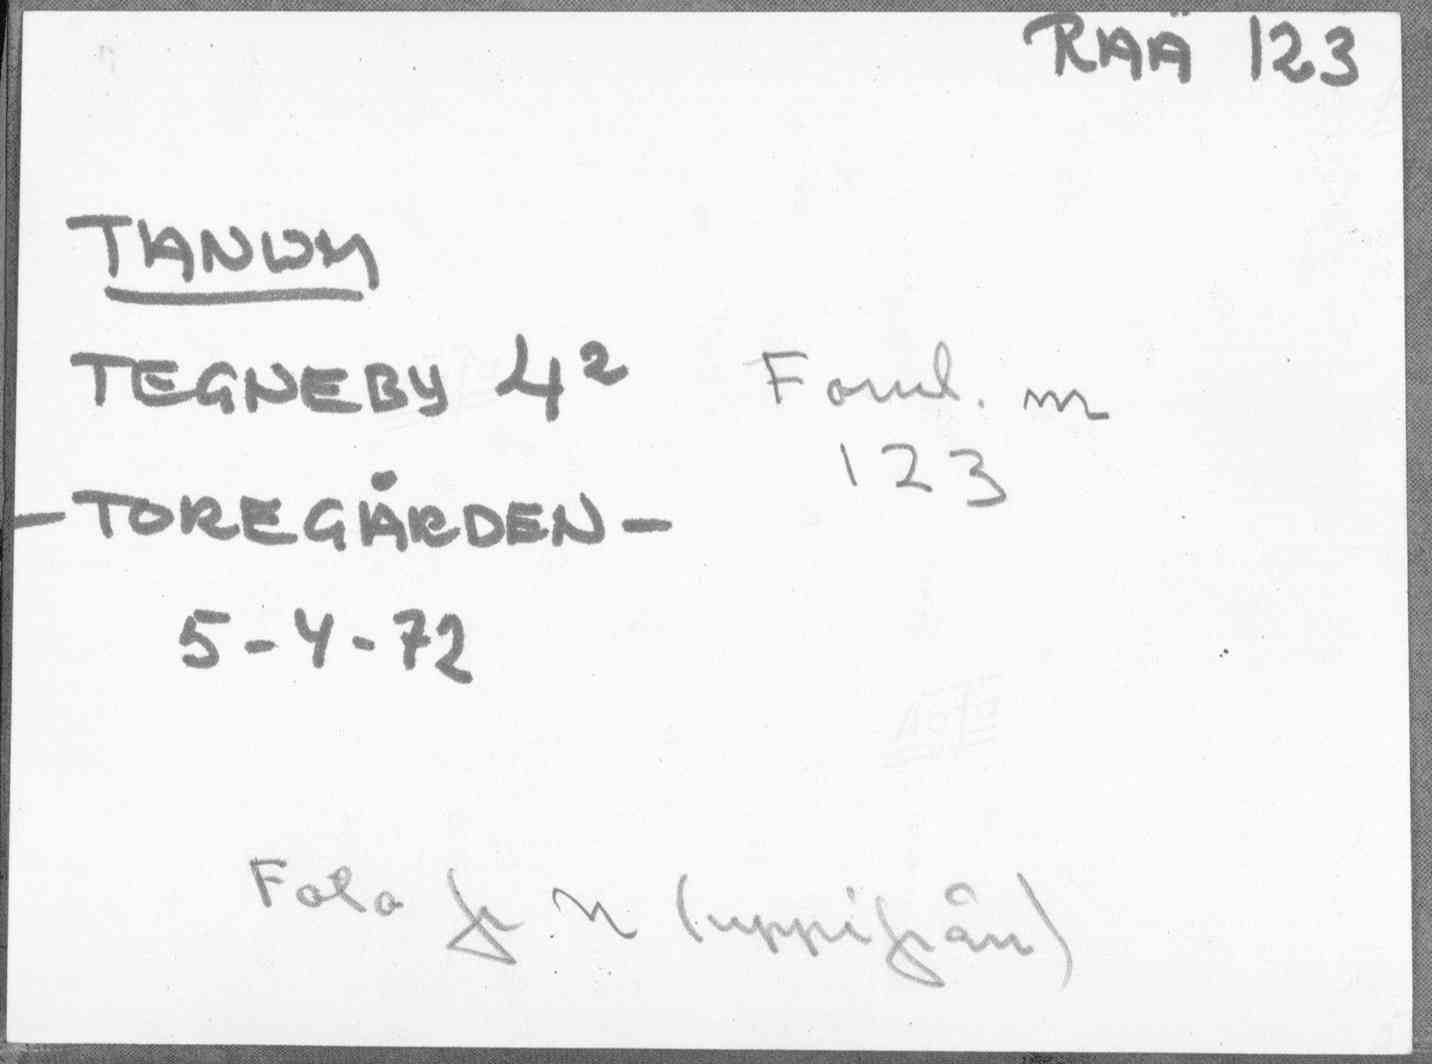 RAÄ 123
TANUM
TEGNEBY 4²
Fornl. nr
123
-TOREGÅRDEN-
5-4-72
Foto fr N (uppifrån)